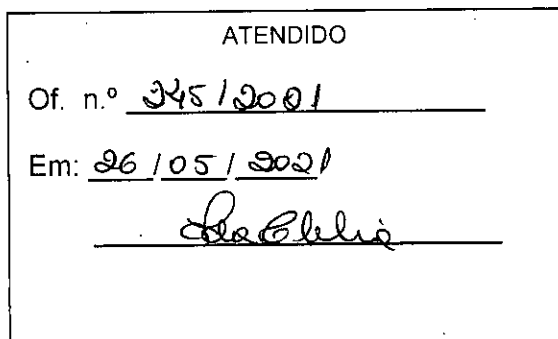 ATENDIDO
Of. n.º 245/2021
Em: 26/05/2021